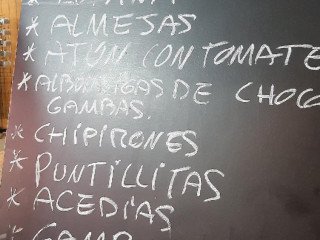 * ALMEJAS
* ATUN CON TOMATE
* ALBONDIGAS DE CHOC
GAMBAS.
* CHIPIRONES
* PUNTILLITAS
* ACEDÍAS
* GAMB